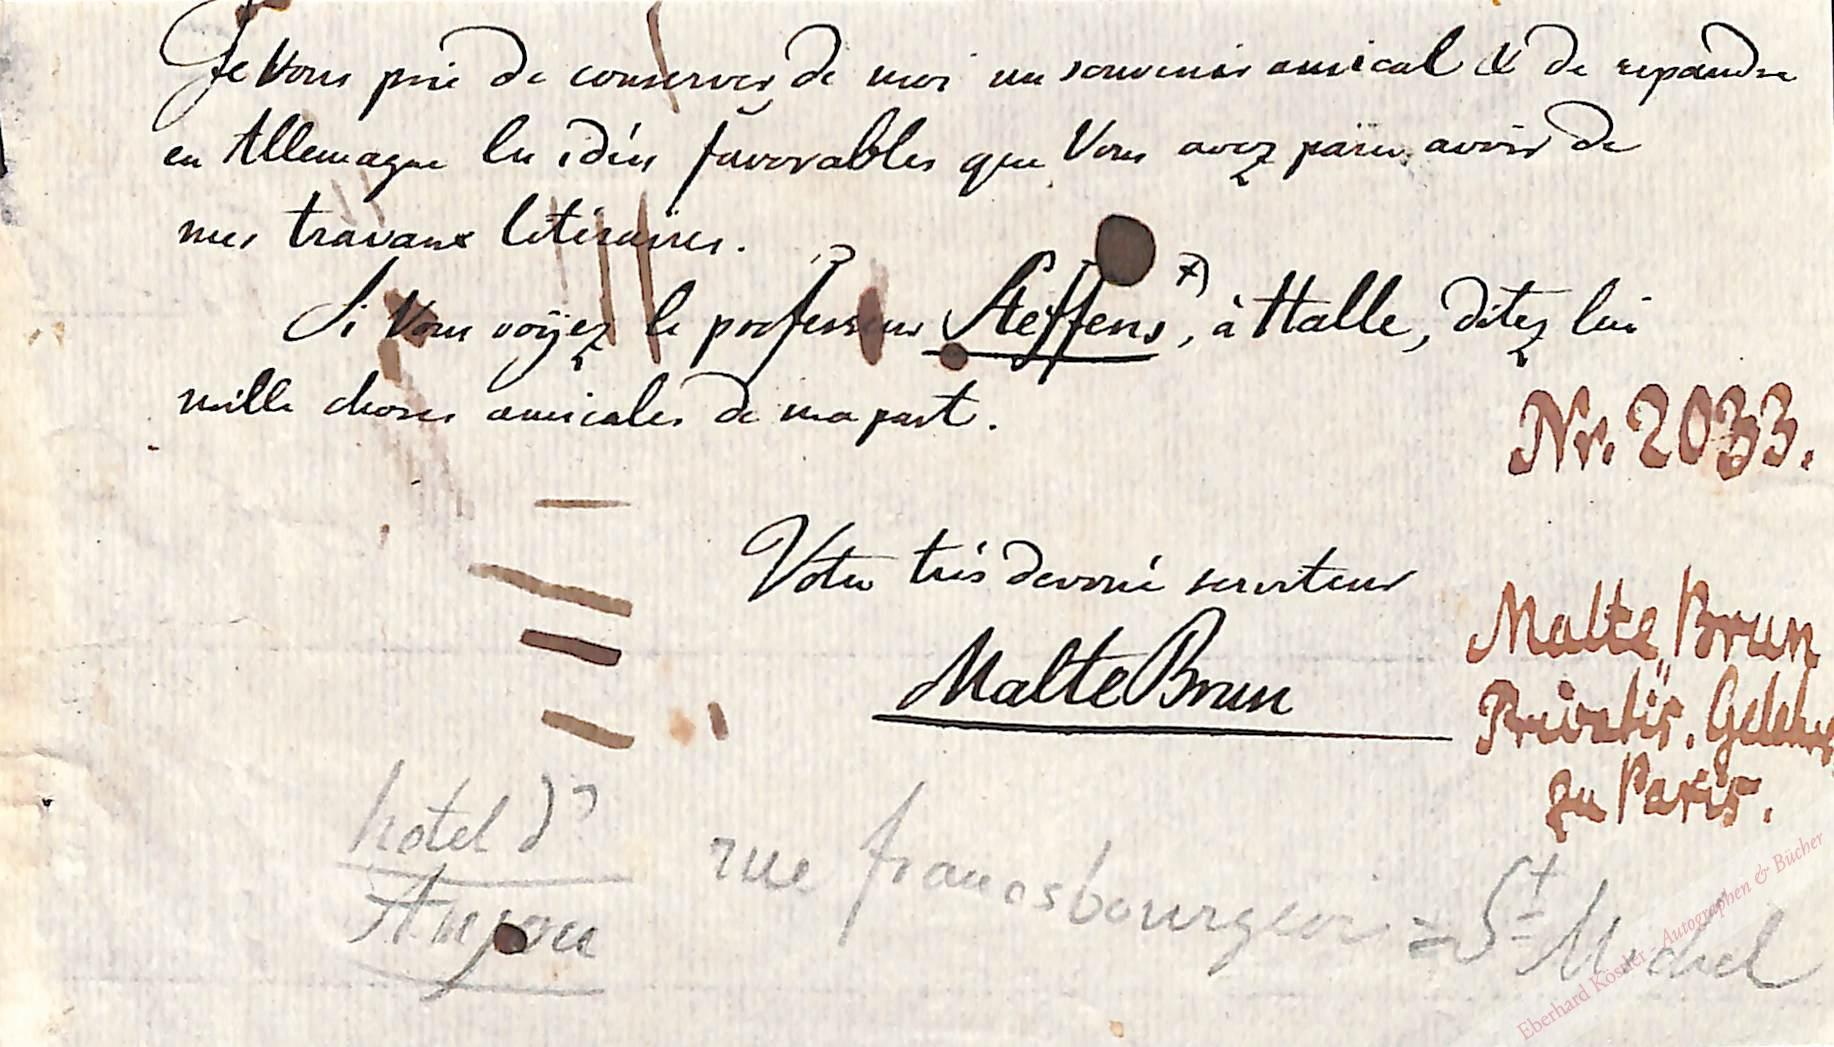 Je Vous prie de conserver de moi un souvenir amical & de repandre
en Allemagne les idées favorables que Vous avez paru avoir de
mes travaux litéraires.
Si Vous voÿez le professeur Steffens *), à Halle, ditez lui
mille choses amicales de ma part.
Nr. 2033.
Votre très devoué serviteur
MalteBrun
Malte Brun
Privatis. Gelehrt
zu Paris.
hotel d'
Anjou
rue francsbourgeois = St Michel
Eberhard Köstler - Autographen & Bücher